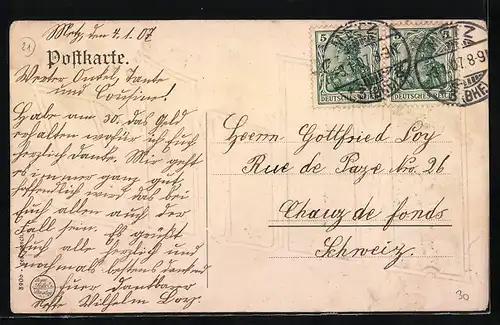 Metz, den 4.1.07
21
Postkarte.
Werter Onkel, Tante
und Cousine!
Habe am 30. das Geld
erhalten wofür ich Euch
herzlich danke. Mir geht
es immer ganz gut
hoffentlich wird das bei
Euch allen auch der
Fall sein. Es grüßt
Euch alle herzlich und
nochmals bestens dankend
Euer dankbarer
Neffe Wilhelm Loy
METZ
5
DEUTSCHES REICH
5
DEUTSCHES REICH
8-9
Herrn Gottfried Loy
Rue de Paze No. 26
Chaux de fonds
Schweiz.
30